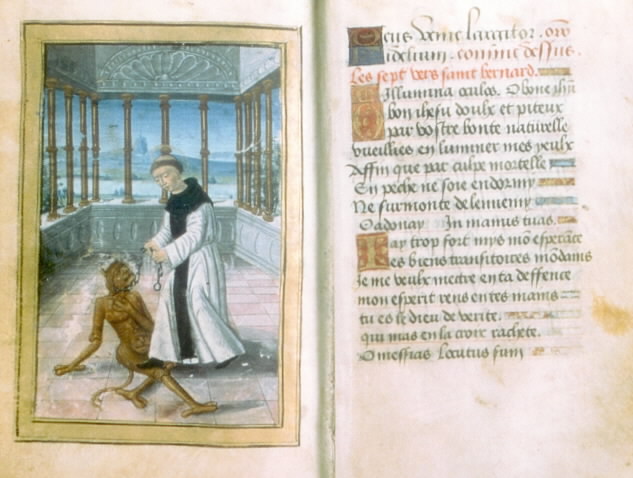 Deus venie largitor. orō
fidelium. comme dessus.
Les sept vers saint bernard.
Illumina oculos. O bone ihū
bon ihesu doulx et piteux
par vostre bonte naturelle
vueillies enluminer mes yeulx
Affin que par culpe mortelle
En peche ne soie endormy
Ne surmonte de lennemy
O adonay In manus tuas.
Jay trop fort mys mō esperāce
es biens transitoires mōdains
Je me veulx mectre en ta deffence
mon esperit rens en tes mains
tu es le dieu de verite.
qui mas en la croix rachete.
O messias Locutus sum